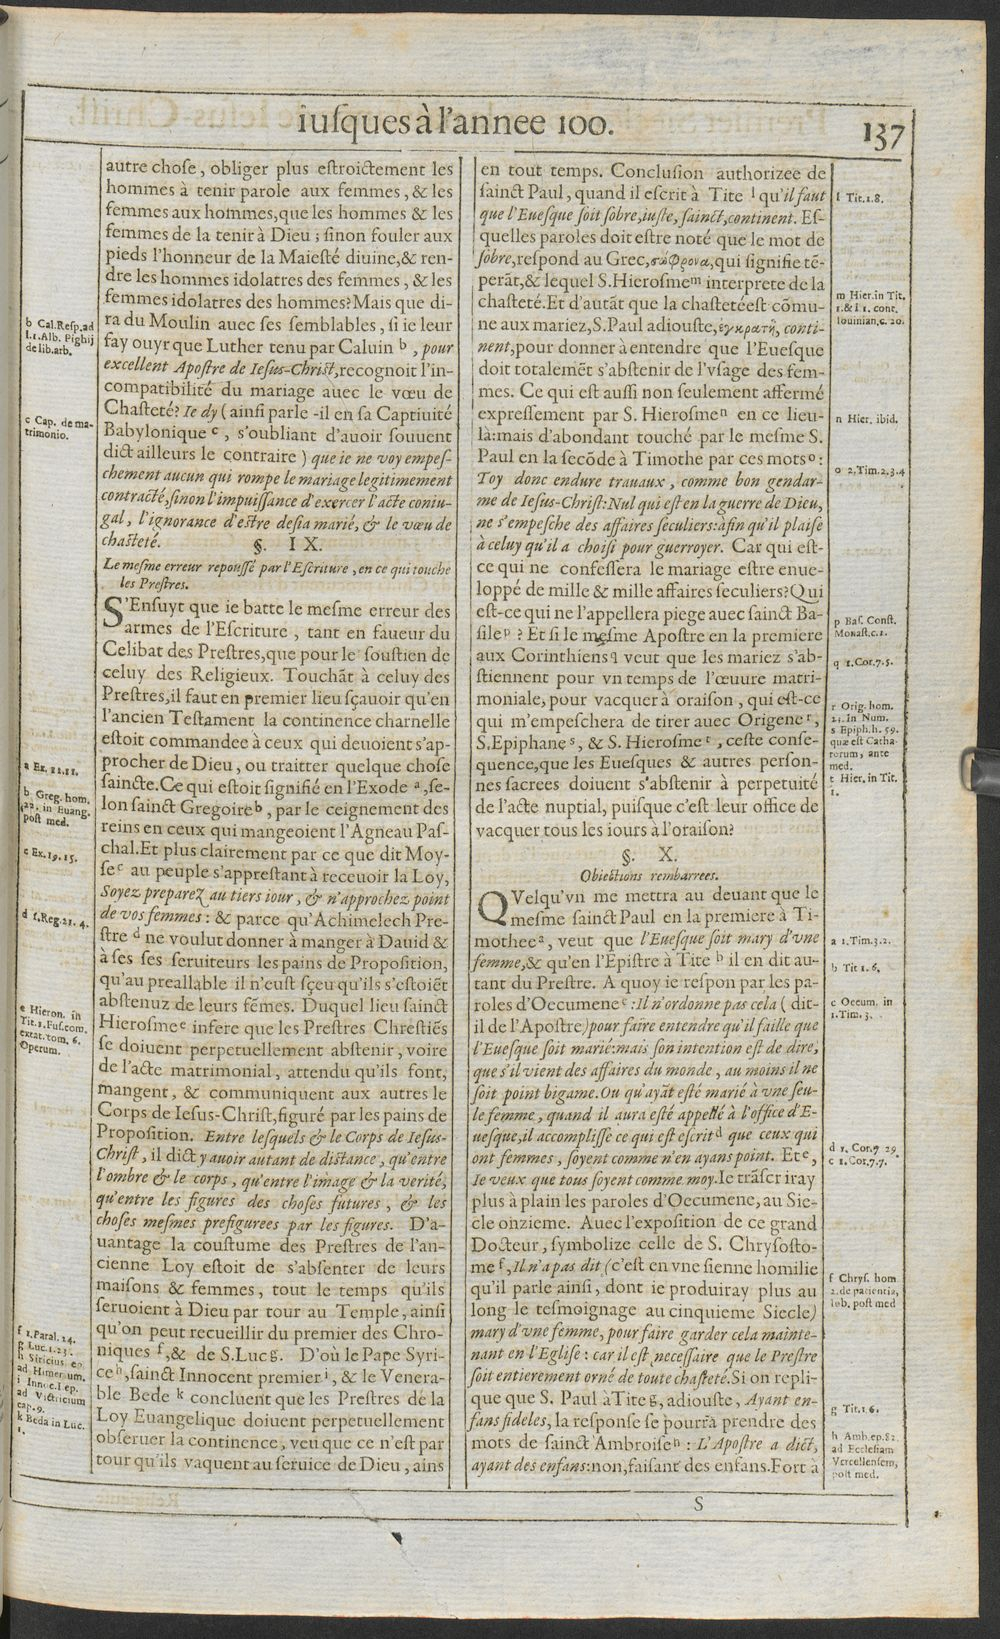 iusques à l'annee 100.
137
autre chose, obliger plus estroictement les
hommes à tenir parole aux femmes, & les
femmes aux hommes, que les hommes & les
femmes de la tenir à Dieu ; sinon fouler aux
pieds l'honneur de la Maiesté diuine, & ren-
dre les hommes idolatres des femmes, & les
femmes idolatres des hommes? Mais que di-
ra du Moulin auec ses semblables, si ie leur
fay ouyr que Luther tenu par Caluin b, pour
excellent Apostre de Iesus-Christ, recognoit l'in-
compatibilité du mariage auec le vœu de
Chasteté? Ie dy ( ainsi parle-il en sa Captiuité
Babylonique c, s'oubliant d'auoir souuent
dict ailleurs le contraire ) que ie ne voy empes-
chement aucun qui rompe le mariage legitimement
contracté, sinon l'impuissance d'exercer l'acte coniu-
gal, l'ignorance d'estre desia marié, & le vœu de
chasteté. §. IX.
Le mesme erreur repoussé par l'Escriture, en ce qui touche
les Prestres.
S'Ensuyt que ie batte le mesme erreur des
armes de l'Escriture, tant en faueur du
Celibat des Prestres, que pour le soustien de
celuy des Religieux. Touchãt à celuy des
Prestres, il faut en premier lieu sçauoir qu'en
l'ancien Testament la continence charnelle
estoit commandee à ceux qui deuoient s'ap-
procher de Dieu, ou traitter quelque chose
saincte. Ce qui estoit signifié en l'Exode a, se-
lon sainct Gregoire b, par le ceignement des
reins en ceux qui mangeoient l'Agneau Pas-
chal. Et plus clairement par ce que dit Moy-
se c au peuple s'apprestant à receuoir la Loy,
Soyez preparez au tiers iour, & n'approchez point
de vos femmes : & parce qu'Achimelech Pre-
stre d ne voulut donner à manger à Dauid &
à ses ses seruiteurs les pains de Proposition,
qu'au preallable il n'eust sçeu qu'ils s'estoiẽt
abstenuz de leurs fẽmes. Duquel lieu sainct
Hierosme e infere que les Prestres Chrestiẽs
se doiuent perpetuellement abstenir, voire
de l'acte matrimonial, attendu qu'ils font,
mangent, & communiquent aux autres le
Corps de Iesus-Christ, figuré par les pains de
Proposition. Entre lesquels & le Corps de Iesus-
Christ, il dict y auoir autant de distance, qu'entre
l'ombre & le corps, qu'entre l'image & la verité,
qu'entre les figures des choses futures, & les
choses mesmes prefigurees par les figures. D'a-
uantage la coustume des Prestres de l'an-
cienne Loy estoit de s'absenter de leurs
maisons & femmes, tout le temps qu'ils
seruoient à Dieu par tour au Temple, ainsi
qu'on peut recueillir du premier des Chro-
niques f, & de S. Luc g. D'où le Pape Syri-
ce h, sainct Innocent premier i, & le Venera-
ble Bede k concluent que les Prestres de la
Loy Euangelique doiuent perpetuellement
obseruer la continence, veu que ce n'est par
tour qu'ils vaquent au seruice de Dieu, ains
b Cal. Resp. ad
l.1. Alb. Pighij
de lib. arb.
c Cap. de ma-
trimonio.
a Ex. 12.11.
b Greg. hom.
22. in Euang.
post med.
c Ex. 19.15.
d 1. Reg. 21. 4.
e Hieron. in
Tit. 1. Fuse com.
extat. tom. 6.
Operum.
f 1. Paral. 24.
g Luc. 1. 23.
h Siricius ep.
ad Himerium.
i Innoc. I ep.
ad Victricium
cap. 9.
k Beda in Luc.
1.
en tout temps. Conclusion authorizee de
sainct Paul, quand il escrit à Tite l qu'il faut
que l'Euesque soit sobre, iuste, sainct, continent. Es-
quelles paroles doit estre noté que le mot de
sobre, respond au Grec, σώφρονα, qui signifie tẽ-
perãt, & lequel S. Hierosme m interprete de la
chasteté. Et d'autãt que la chasteté est cõmu-
ne aux mariez, S. Paul adiouste, ἐγκρατῆ, conti-
nent, pour donner à entendre que l'Euesque
doit totalemẽt s'abstenir de l'vsage des fem-
mes. Ce qui est aussi non seulement affermé
expressement par S. Hierosme n en ce lieu-
là: mais d'abondant touché par le mesme S.
Paul en la secõde à Timothe par ces mots o:
Toy donc endure trauaux, comme bon gendar-
me de Iesus-Christ: Nul qui est en la guerre de Dieu,
ne s'empesche des affaires seculiers: à fin qu'il plaise
à celuy qu'il a choisi pour guerroyer. Car qui est-
ce qui ne confessera le mariage estre enue-
loppé de mille & mille affaires seculiers? Qui
est-ce qui ne l'appellera piege auec sainct Ba-
sile p ? Et si le mesme Apostre en la premiere
aux Corinthiens q veut que les mariez s'ab-
stiennent pour vn temps de l'œuure matri-
moniale, pour vacquer à oraison, qui est-ce
qui m'empeschera de tirer auec Origene r,
S. Epiphane s, & S. Hierosme t, ceste conse-
quence, que les Euesques & autres person-
nes sacrees doiuent s'abstenir à perpetuité
de l'acte nuptial, puisque c'est leur office de
vacquer tous les iours à l'oraison?
§. X.
Obiections rembarrees.
QVelqu'vn me mettra au deuant que le
mesme sainct Paul en la premiere à Ti-
mothee a, veut que l'Euesque soit mary d'vne
femme, & qu'en l'Epistre à Tite b il en dit au-
tant du Prestre. A quoy ie respon par les pa-
roles d'Oecumene c : Il n'ordonne pas cela ( dit-
il de l'Apostre) pour faire entendre qu'il faille que
l'Euesque soit marié: mais son intention est de dire,
que s'il vient des affaires du monde, au moins il ne
soit point bigame. Ou qu'ayãt esté marié à vne seu-
le femme, quand il aura esté appellé à l'office d'E-
uesque, il accomplisse ce qui est escrit d que ceux qui
ont femmes, soyent comme n'en ayans point. Et e,
Ie veux que tous soyent comme moy. Ie trãscriray
plus à plain les paroles d'Oecumene, au Sie-
cle onzieme. Auec l'exposition de ce grand
Docteur, symbolize celle de S. Chrysosto-
me f, Il n'a pas dit (c'est en vne sienne homilie
qu'il parle ainsi, dont ie produiray plus au
long le tesmoignage au cinquieme Siecle)
mary d'vne femme, pour faire garder cela mainte-
nant en l'Eglise : car il est necessaire que le Prestre
soit entierement orné de toute chasteté. Si on repli-
que que S. Paul à Tite g, adiouste, Ayant en-
fans fideles, la response se pourra prendre des
mots de sainct Ambroise h : L'Apostre a dict,
ayant des enfans: non, faisant des enfans. Fort à
l Tit. 1. 8.
m Hier. in Tit.
1. & l 1. cont.
Iouinian. c. 20.
n Hier. ibid.
o 2. Tim. 2. 3. 4
p Bas. Const.
Monast. c. 1.
q 1. Cor. 7. 5.
r Orig. hom.
23. in Num.
s Epiph. h. 59.
quæ est Catha-
rorum, ante
med.
t Hier. in Tit.
1.
a 1. Tim. 3. 2.
b Tit 1. 6.
c Oecum. in
1. Tim. 3.
d 1. Cor. 7 29.
e 1. Cor. 7. 7.
f Chrys. hom
2. de patientia,
Iob. post med
g Tit. 1 6.
h Amb. ep. 82.
ad Ecclesiam
Vercellensem,
post med.
S